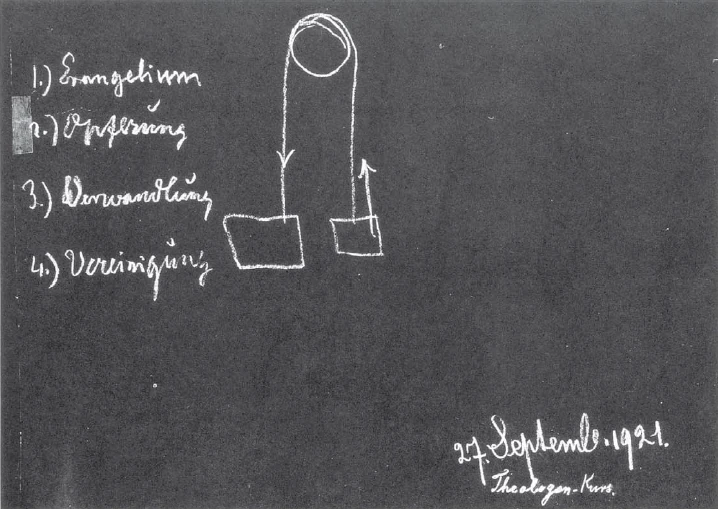 1.) Evangelium
2.) Opferung
3.) Verwandlung
4.) Vereinigung
27. Septemb. 1921.
Theologen-Kurs.